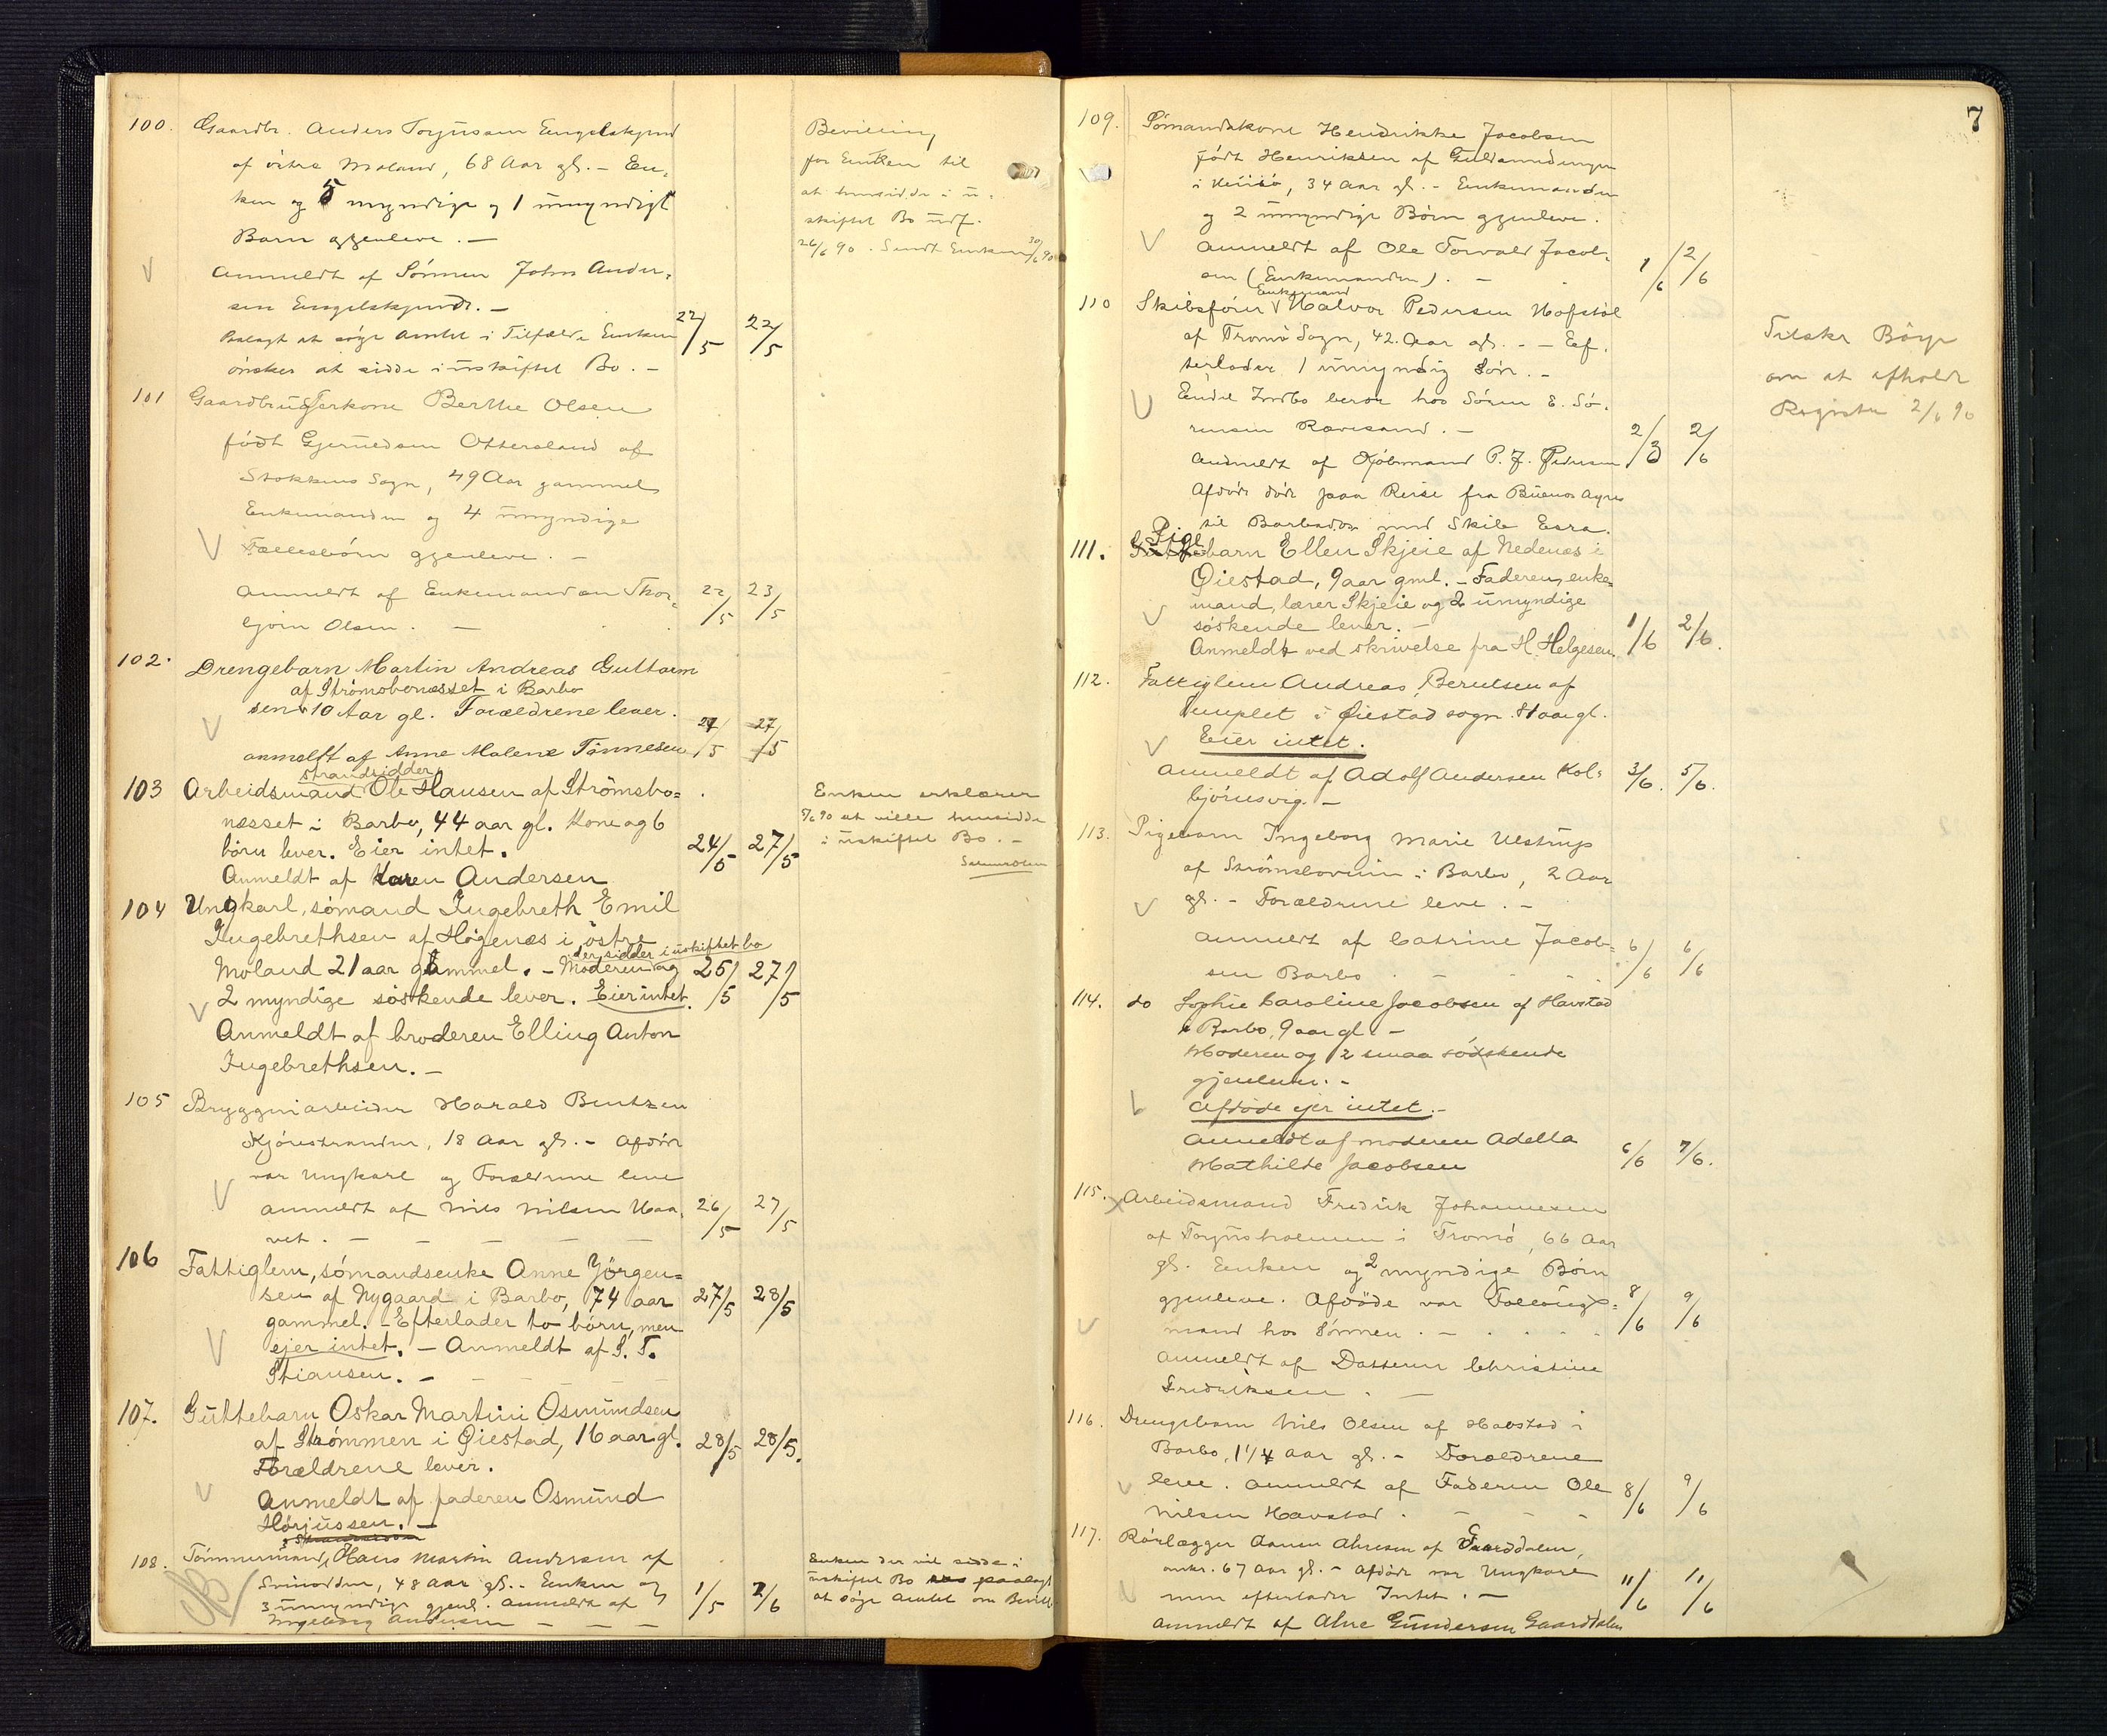 100. Gaardbr. Anders Torjussen Engelskjønd
af østre Moland, 68 Aar gl. - En-
ken og 5 myndige og 1 umyndigt
Barn gjenleve. -
Anmeldt af Sønnen John Ander-
sen Engelskjønd. -
Paalagt at søge Amtet i Tilfælde Enken 22/5 22/5
ønsker at sidde i uskiftet Bo. -
Bevilling
for Enken til
at hensidde i u-
skiftet Bo udf.
26/6 90. Sendt Enken 30/6 90
101 Gaardbrugerkone Berthe Olsen
født Gjeruldsen Ottersland af
Stokkens Sogn, 49 Aar gammel
Enkemanden og 4 umyndige
Fællesbørn gjenleve. -
Anmeldt af Enkemanden Thor- 22/5 23/5
bjørn Olsen. -
102. Drengebarn Martin Andreas Guttorm
af Strømsbonæsset i Barbo
sen 10 Aar gl. Forældrene lever.
anmeldt af Anne Malene Tønnesen 27/5 27/5
strandsidder
103 Arbeidsmand Ole Hansen af Strømsbo=
næsset i Barbo, 44 aar gl. Kone og 6
børn lever. Eier intet. 24/5 27/5
Anmeldt af Karen Andersen
Enken erklærer
at ville hensidde
i uskiftet Bo. -
104 Ungkarl, sømand Ingebreth Emil
Ingebrethsen af Høgenæs i østre
der sidder i uskiftet bo
Moland 21 aar gammel. - Moderen og 25/5 27/5
2 myndige søskende lever. Eier intet.
Anmeldt af broderen Elling Anton
Ingebrethsen. -
105 Bryggeriarbeider Harald Bentzen
Kjønstranden, 18 Aar gl. - Afdøde
var Ungkarl og Forældrene leve
anmeldt af Nils Nilsen Haa- 26/5 27/5
vet. -
106 Fattiglem, sømandsenke Anne Jørgen=
sen af Nygaard i Barbo, 74 aar 27/5 28/5
gammel. - Efterlader to børn, men
ejer intet. - Anmeldt af S. T.
Stiansen. -
107. Guttebarn Oskar Martin Osmundsen
af Strømmen i Øiestad, 16 aar gl. 28/5 28/5.
Forældrene lever.
Anmeldt af faderen Osmund
Hørjussen. -
108. Tømmermand Hans Martin Andersen af
48 aar gl. - Enken og
3 umyndige gjenl. Anmeldt af 1/5 2/6
Ingeborg Andersen -
Enken der vil sidde i
uskiftet Bo paalagt
at søge Amtet om Bevill
7
109. Sømandskone Hendrikke Jacobsen
født Henriksen af Guldsmedengen
i Hisø, 34 Aar gl. - Enkemanden
og 2 umyndige Børn gjenleve.
Anmeldt af Ole Torvald Jacob-
sen (Enkemanden). - 1/6 2/6
Enkemand
110 Skibsfører Halvor Pedersen Hofstøl
af Tromø Sogn, 42 Aar gl. - Ef-
terlader 1 umyndig Søn. -
Endel Indbo beror hos Søren E. Sø-
rensen Rævesand. - 2/3 2/6
Anmeldt af Kjøbmand P. J. Pedersen
Afdøde døde paa Reise fra Buenos Ayres
til Barbados med Skib Esra.
Tilskr Børje
om at afholde
Registr 2/6 90
Pige
111. Guttebarn Ellen Skjeie af Nedenæs i
Øiestad, 9 aar gml. - Faderen, enke=
mand, lærer Skjeie og 2 umyndige
søskende lever. -
Anmeldt ved skrivelse fra H. Helgesen. 1/6 2/6.
112. Fattiglem Andreas Berulsen af
Templet i Øiestad sogn. 81 aar gl.
Eier intet.
anmeldt af Adolf Andersen Kol= 3/6. 5/6.
bjørnsvig. -
113. Pigebarn Ingeborg Marie Ulstrup
af Strømsboveien i Barbo, 2 Aar
gl. - Forældrene leve. -
anmeldt af Catrine Jacob= 6/6 6/6
sen Barbo. -
114. do Sophie Caroline Jacobsen af Havstad
i Barbo, 9 aar gl. -
Moderen og 2 smaa sødskende
gjenlever. -
Afdøde ejer intet. -
Anmeldt af moderen Adella
Mathilde Jacobsen 6/6 7/6.
115. Arbeidsmand Fredrik Johannesen
af Torjusholmen i Tromø, 66 Aar
gl. Enken og 2 myndige Børn
gjenleve. Afdøde var Følougs= 8/6 9/6
mand hos Sønnen. -
anmeldt af Datteren Christine
Fredriksen. -
116. Drengebarn Nils Olsen af Havstad i
Barbo, 1 1/4 Aar gl. - Forældrene
leve. anmeldt af Faderen Ole 8/6 9/6
Nilsen Havstad. -
117. Rørlægger Aanen Ahresen af Gaarddalen,
omkr. 67 Aar gl. - Afdøde var Ungkarl
men efterlader Intet. - 11/6 11/6
anmeldt af Ahre Gundersen Gaarddalen